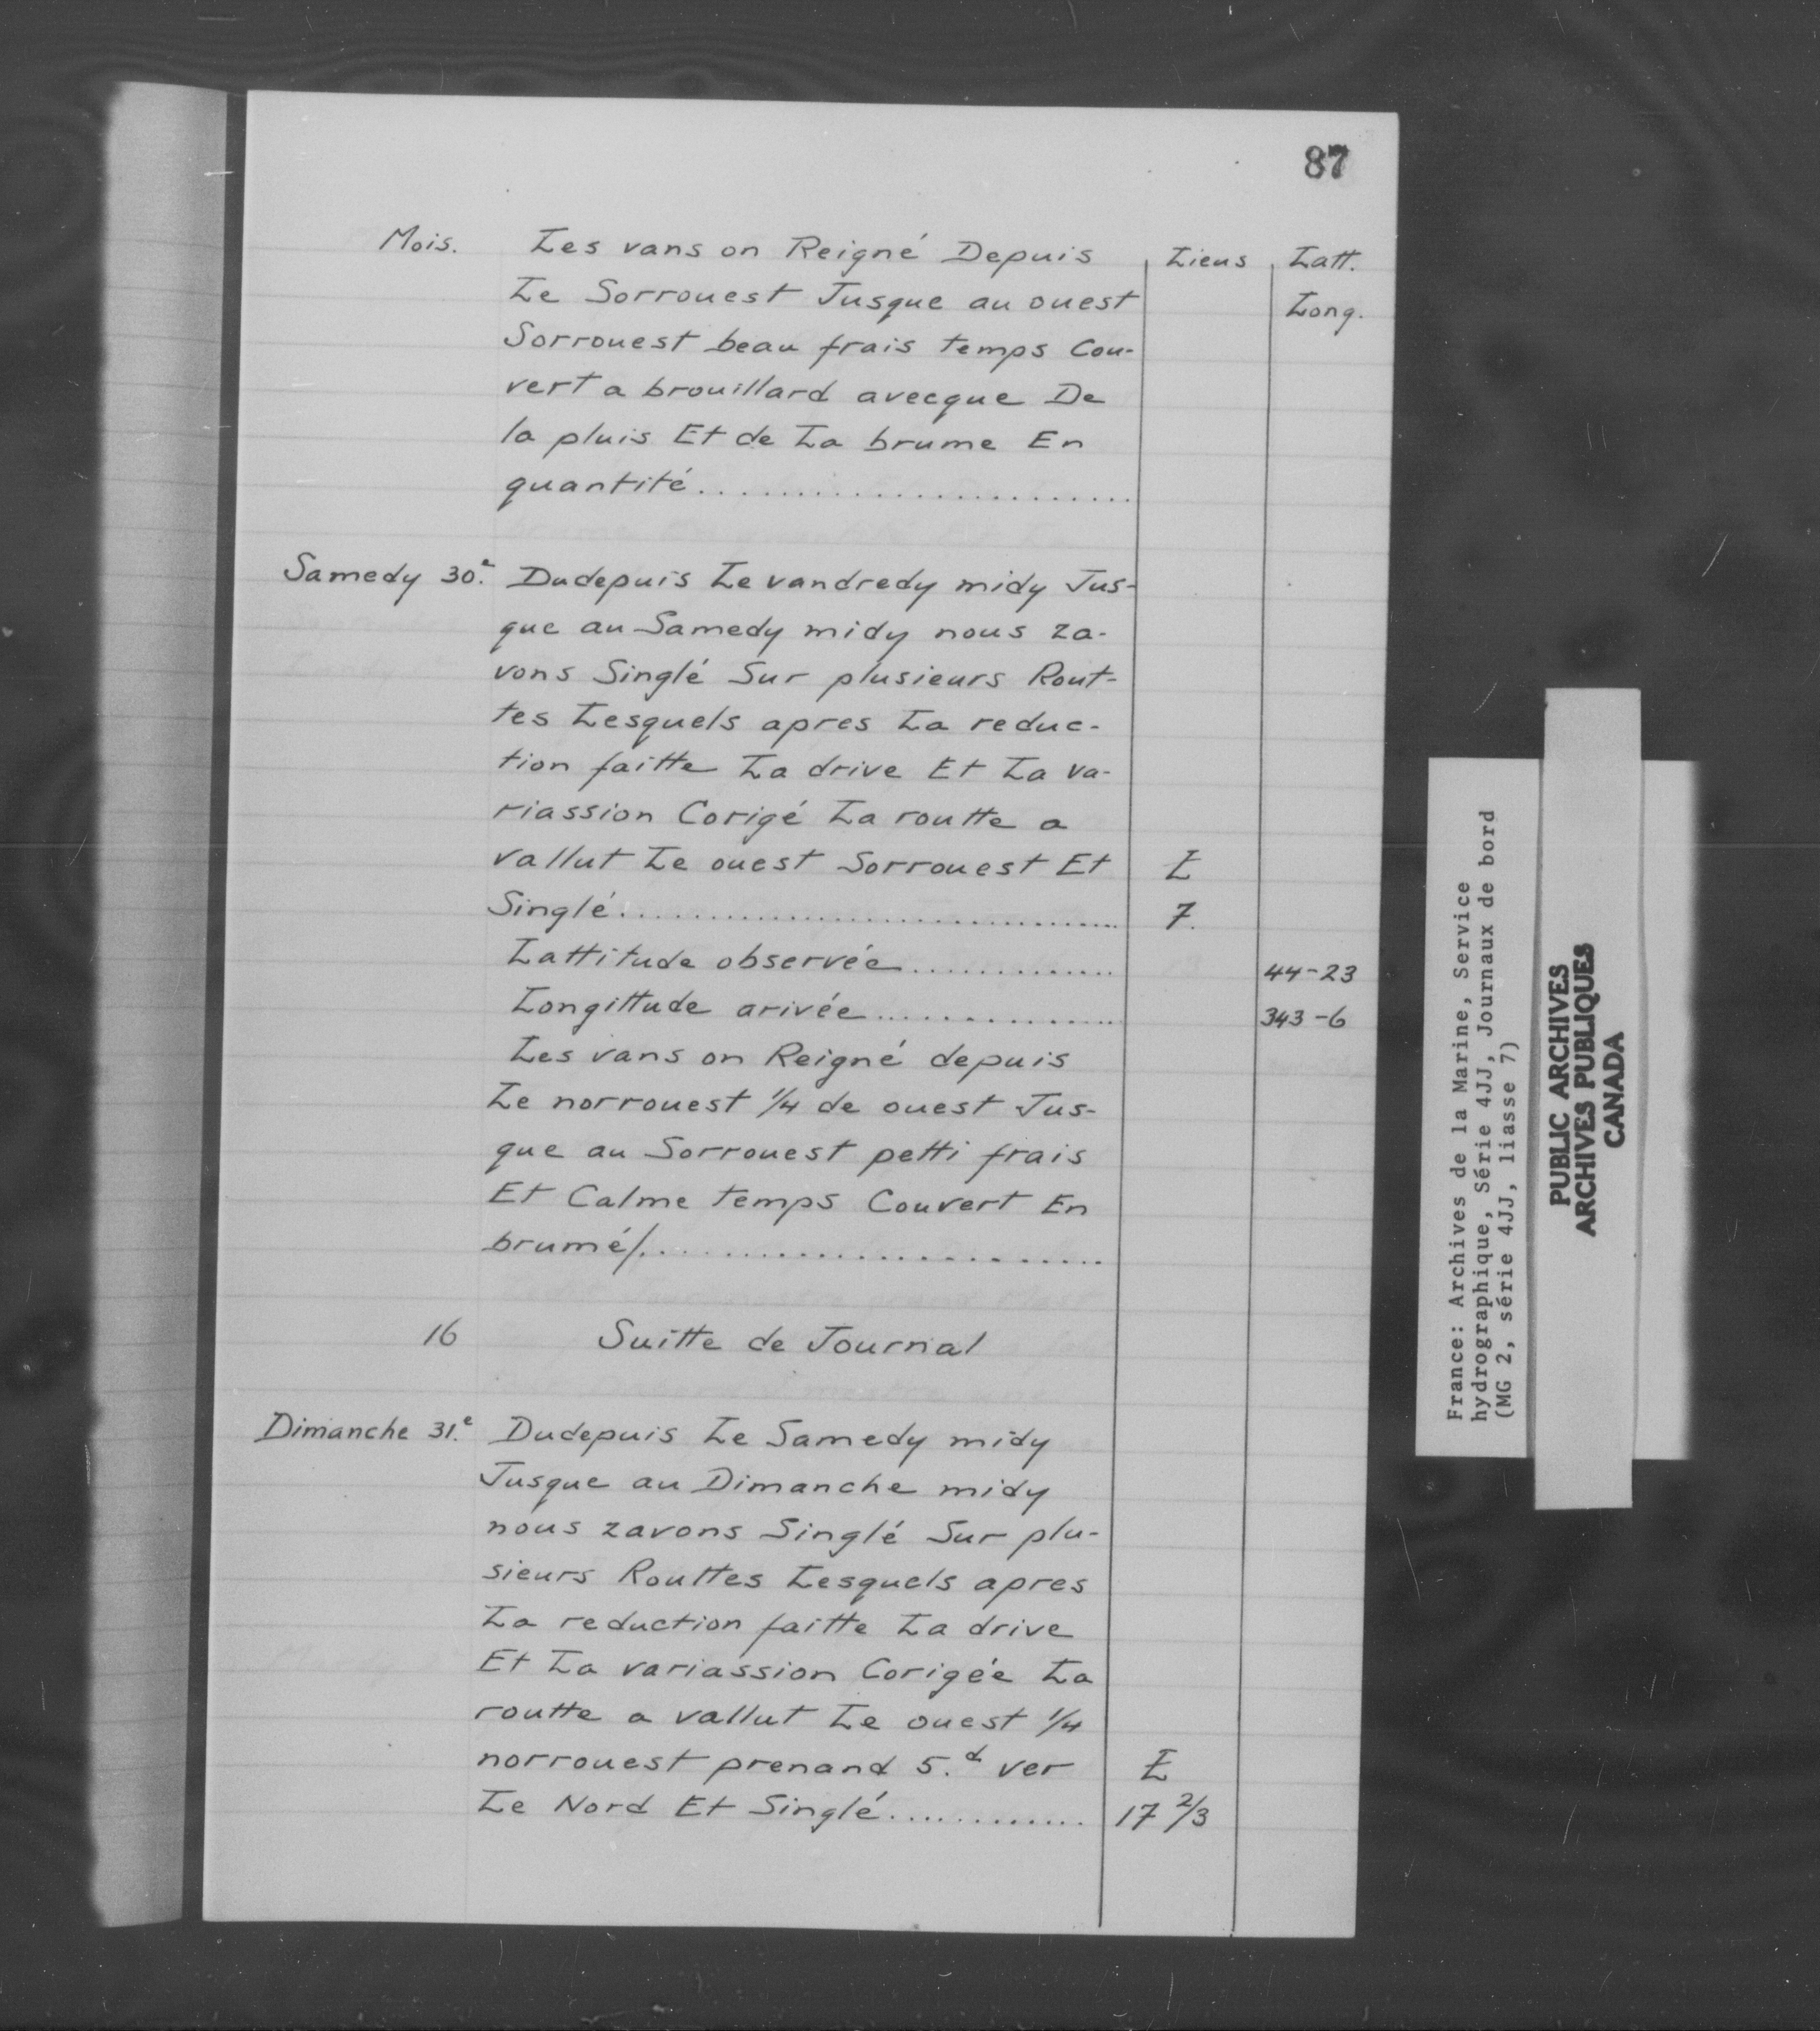 87
Mois. Les vans on Reigné Depuis Lieus Latt.
Le Sorrouest Jusque au ouest Long.
Sorrouest beau frais temps Cou-
vert a brouillard avecque De
la pluis Et de La brume En
quantité........................
Samedy 30.e Dudepuis Le vandredy midy Jus-
que au Samedy midy nous za-
vons Singlé Sur plusieurs Rout-
tes Lesquels apres La reduc-
tion faitte La drive Et La va-
riassion Corigé La routte a
vallut Le ouest Sorrouest Et L
Singlé.............................. 7.
Lattitude observée............. 44-23
Longittude arivée............... 343-6
Les vans on Reigné depuis
Le norrouest 1/4 de ouest Jus-
que au Sorrouest petti frais
Et Calme temps Couvert En
brumé/.......................
16 Suitte de Journal
Dimanche 31.e Dudepuis Le Samedy midy
Jusque au Dimanche midy
nous zavons Singlé Sur plu-
sieurs Routtes Lesquels apres
La reduction faitte La drive
Et La variassion Corigée La
routte a vallut Le ouest 1/4
norrouest prenand 5.d ver L
Le Nord Et Singlé............. 17 2/3
France: Archives de la Marine, Service
hydrographique, Série 4JJ, Journaux de bord
(MG 2, série 4JJ, liasse 7)
PUBLIC ARCHIVES
ARCHIVES PUBLIQUES
CANADA